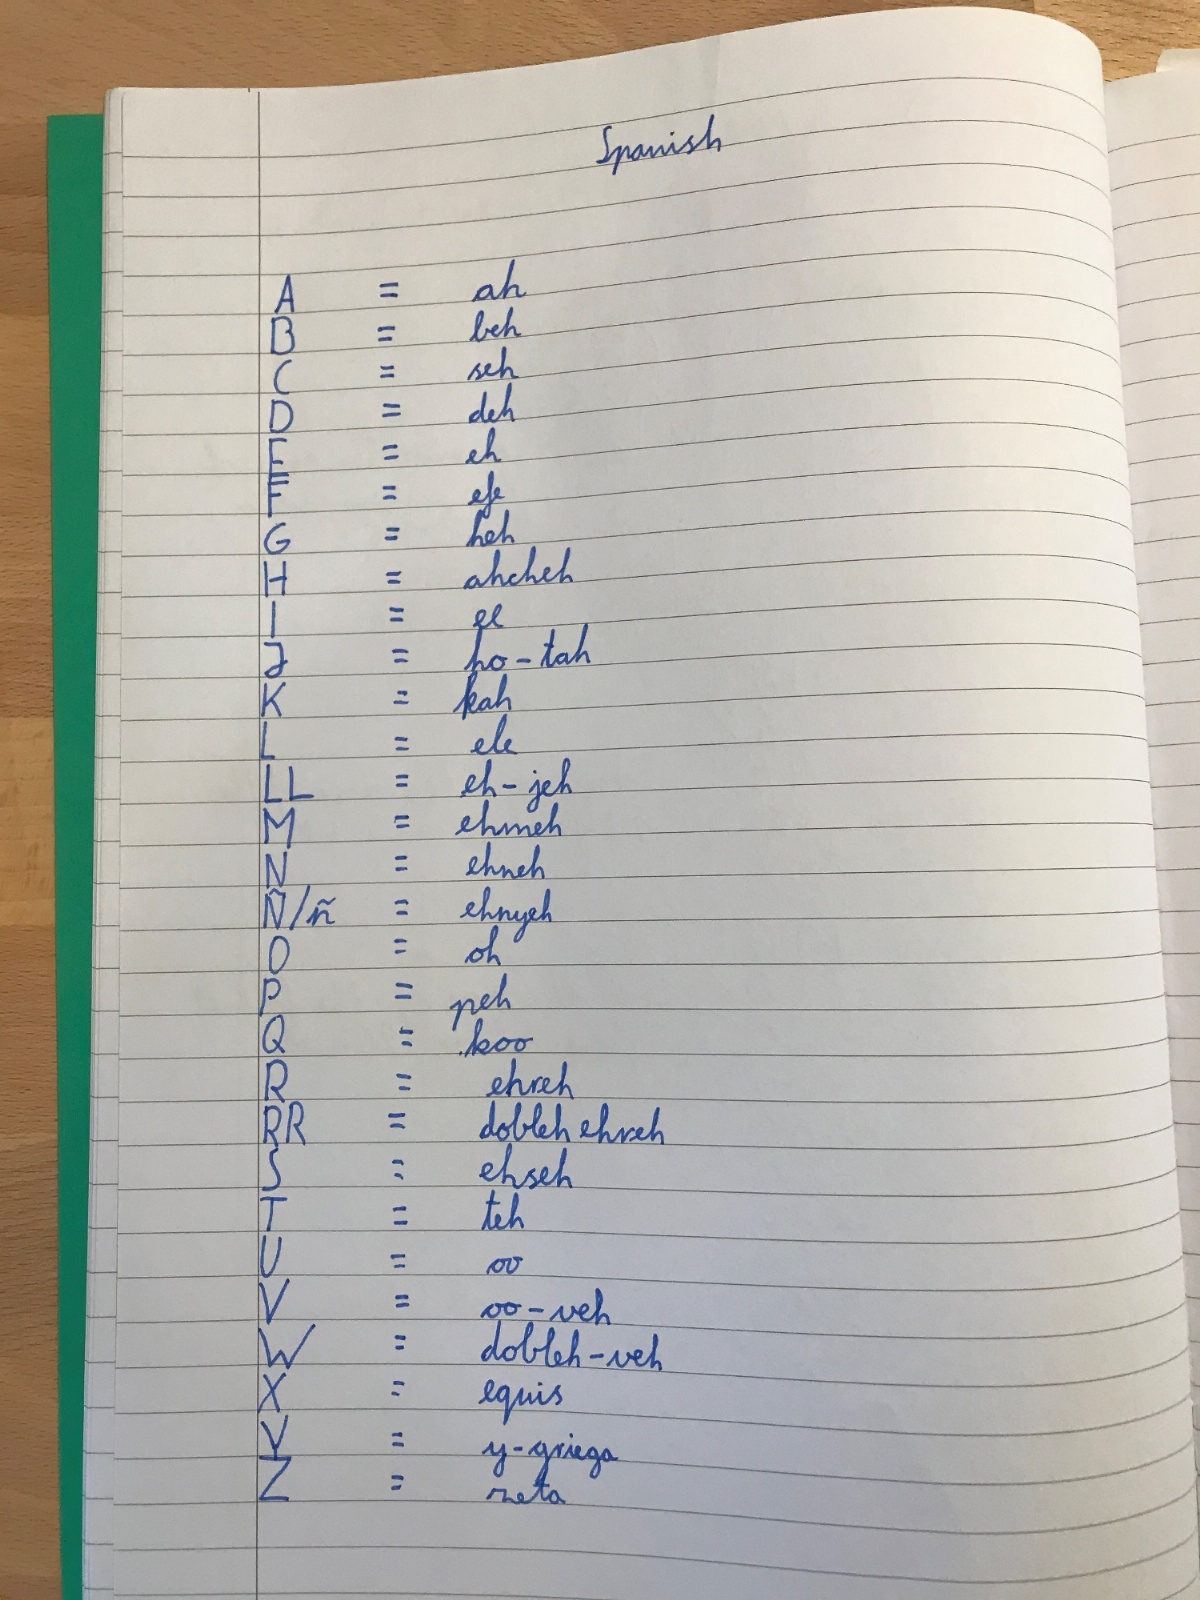 Spanish
A = ah
B = beh
C = seh
D = deh
E = eh
F = efe
G = heh
H = ahcheh
I = ee
J = ho-tah
K = kah
L = ele
LL = eh-jeh
M = ehmeh
N = ehneh
Ñ/ñ = ehnyeh
O = oh
P = peh
Q = koo
R = ehreh
RR = dobleh ehreh
S = ehseh
T = teh
U = oo
V = oo-veh
W = dobleh-veh
X = equis
Y = y-griega
Z = zeta